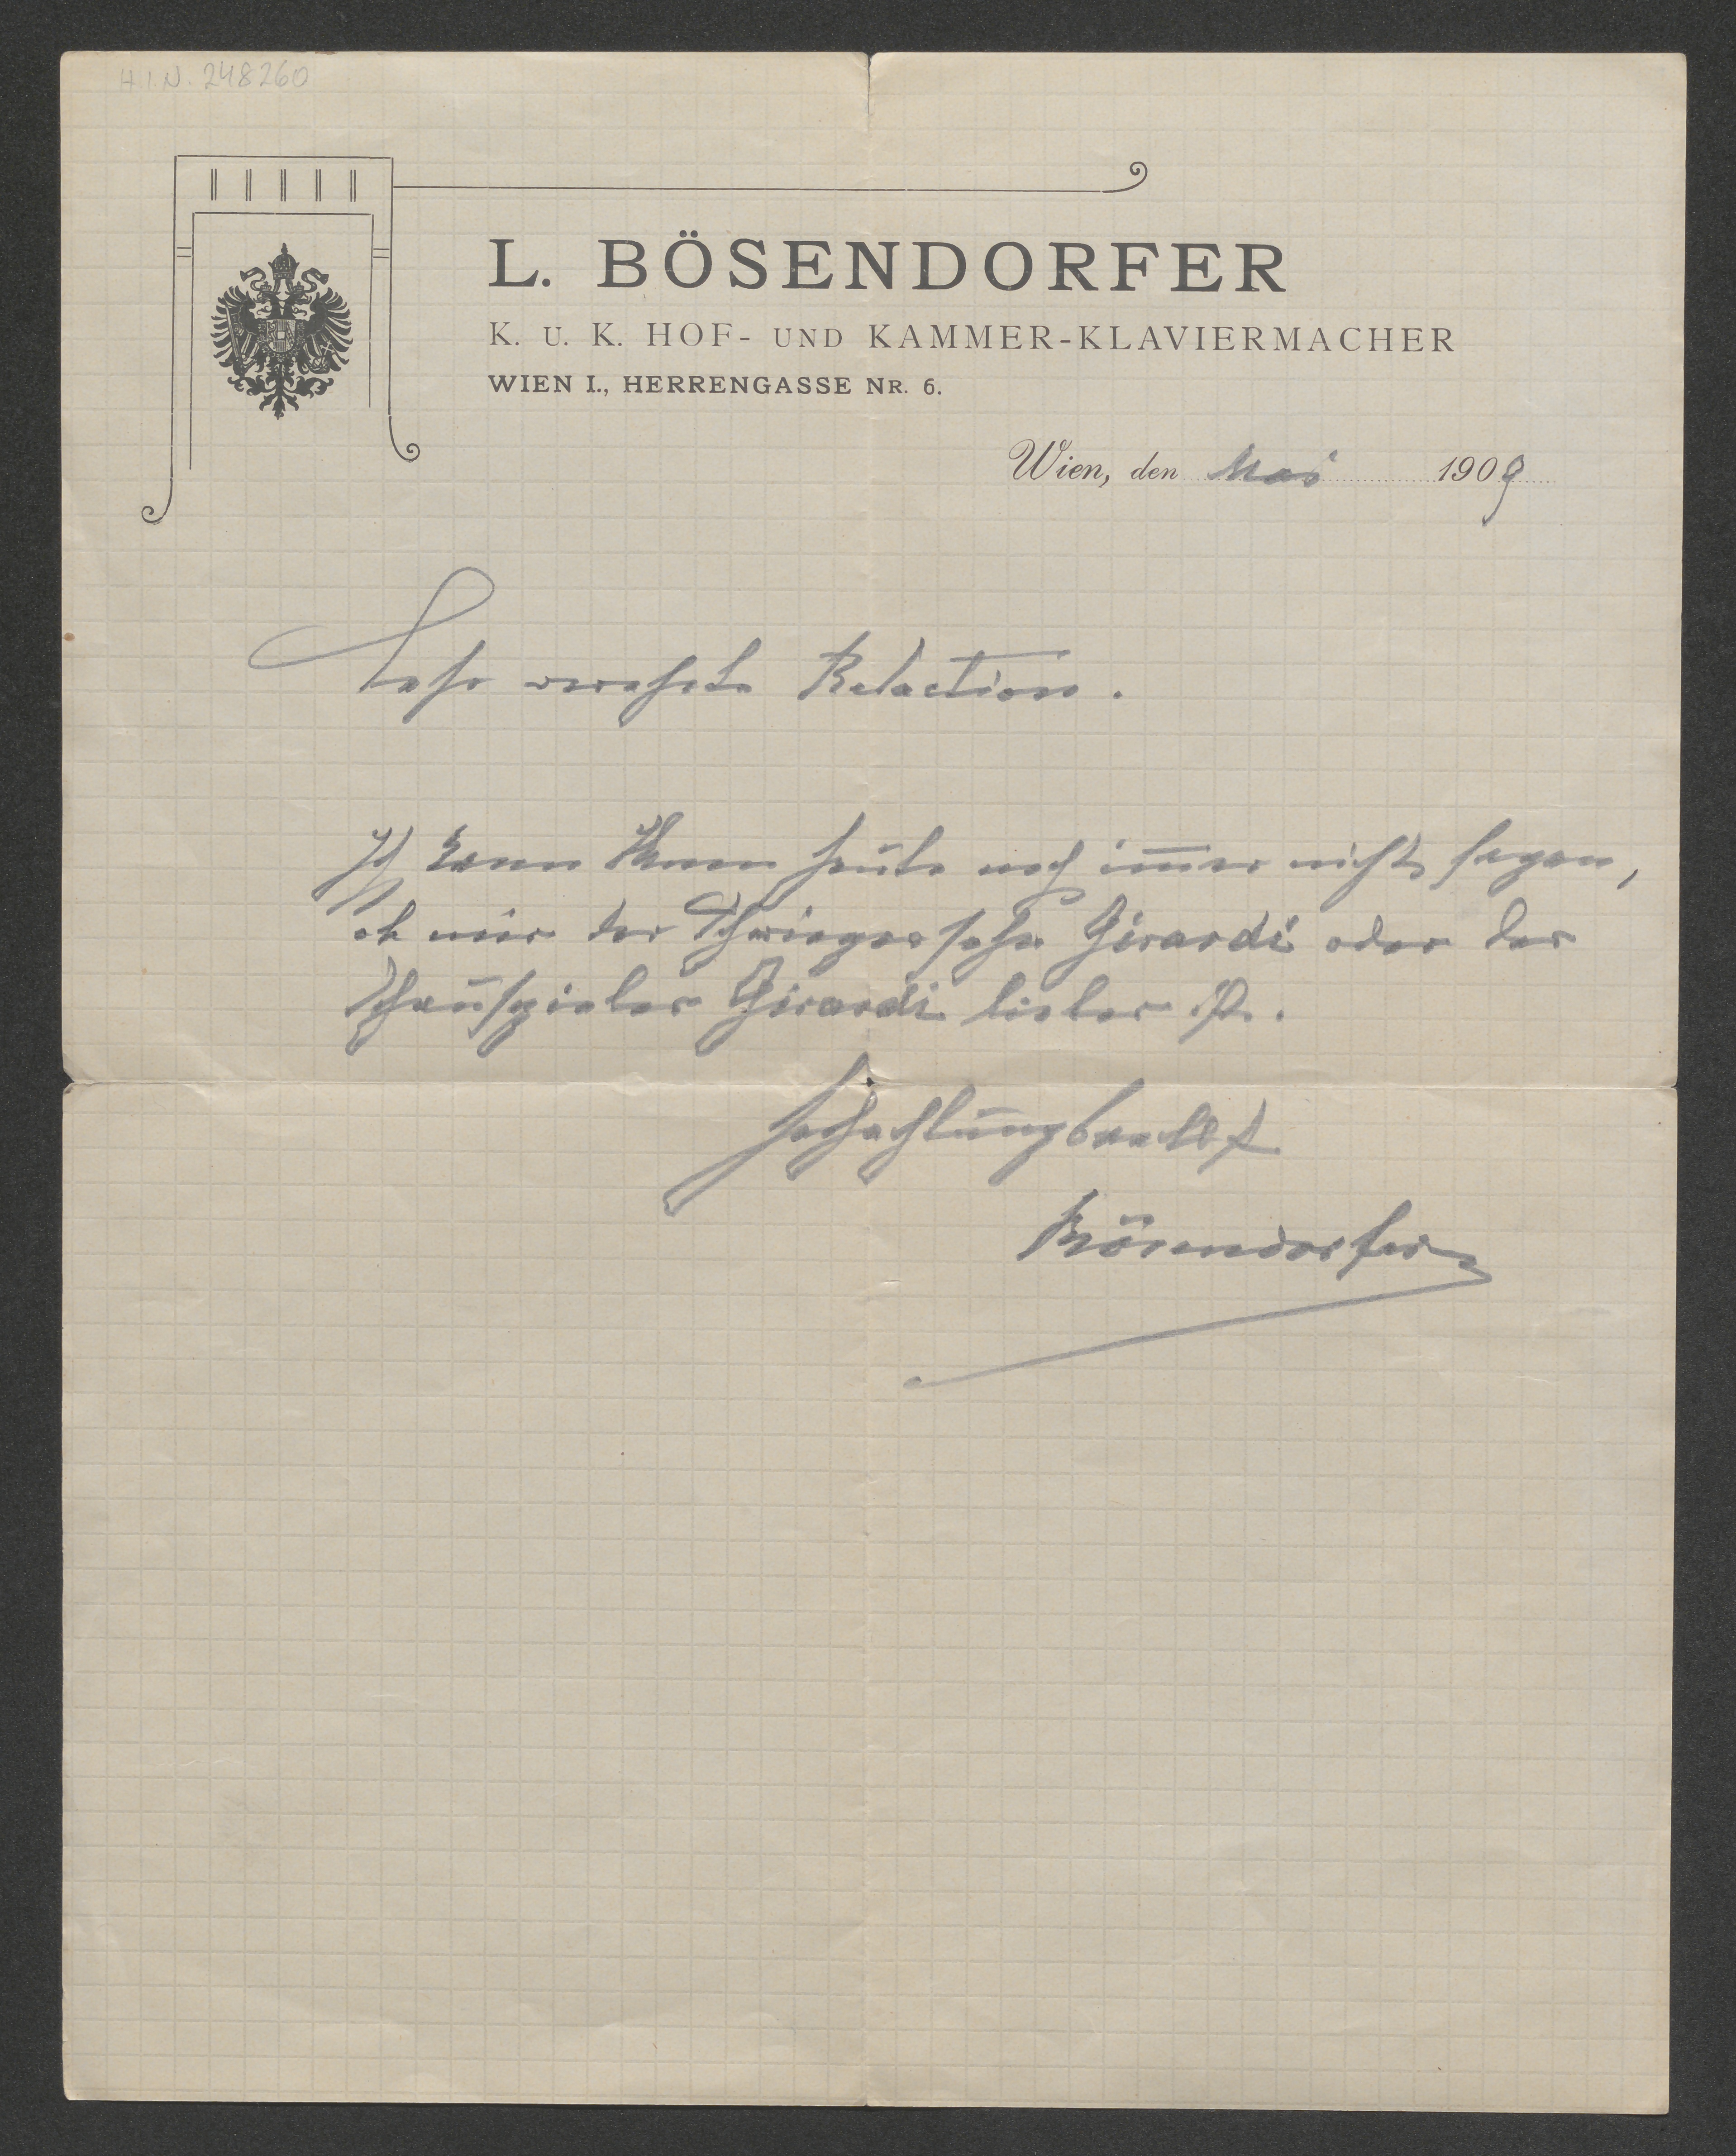 H.I.N. 248260
L. BÖSENDORFER
K. U. K. HOF- UND KAMMER-KLAVIERMACHER
WIEN I., HERRENGASSE NR. 6.
Wien, den Mai 1909
Sehr verehrte Redaction.
Ich kann Ihnen heute noch im̅er nicht sagen,
ob mir der Schwiegersohn Girardi oder der
Schauspieler Girardi lieber ist.
Hochachtungsvollst
Bösendorfer